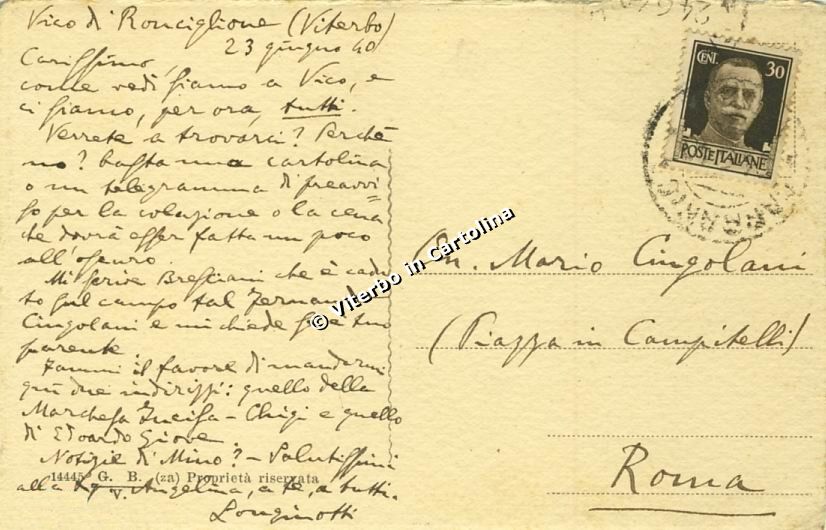 Vico di Ronciglione (Viterbo)
23 giugno 40
Carissimo,
come vedi siamo a Vico, e
ci siamo, per ora, tutti.
Verrete a trovarci? Perché
no? basta una cartolina
o un telegramma di preavvi=
so per la colazione o la cena
che dovrà esser fatta un poco
all'oscuro.
Mi scrive Bresciani che è cadu
to sul campo tal Fernando
Cingolani e mi chiede se è tuo
parente.
Fammi il favore di mandarmi
qui due indirizzi: quello della
Marchesa Incisa-Chigi e quello
di Edoardo Giove.
Notizie di Mino? - Salutissimi
alla Angelina, a te, a tutti.
Longinotti
14445 G. B. (za) Proprietà riservata
CENT. 30
POSTE ITALIANE
On. Mario Cingolani
(Piazza in Campitelli)
Roma
© Viterbo in Cartolina